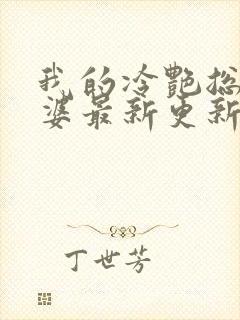 我的冷艷总
婆最新更新
丁世芳